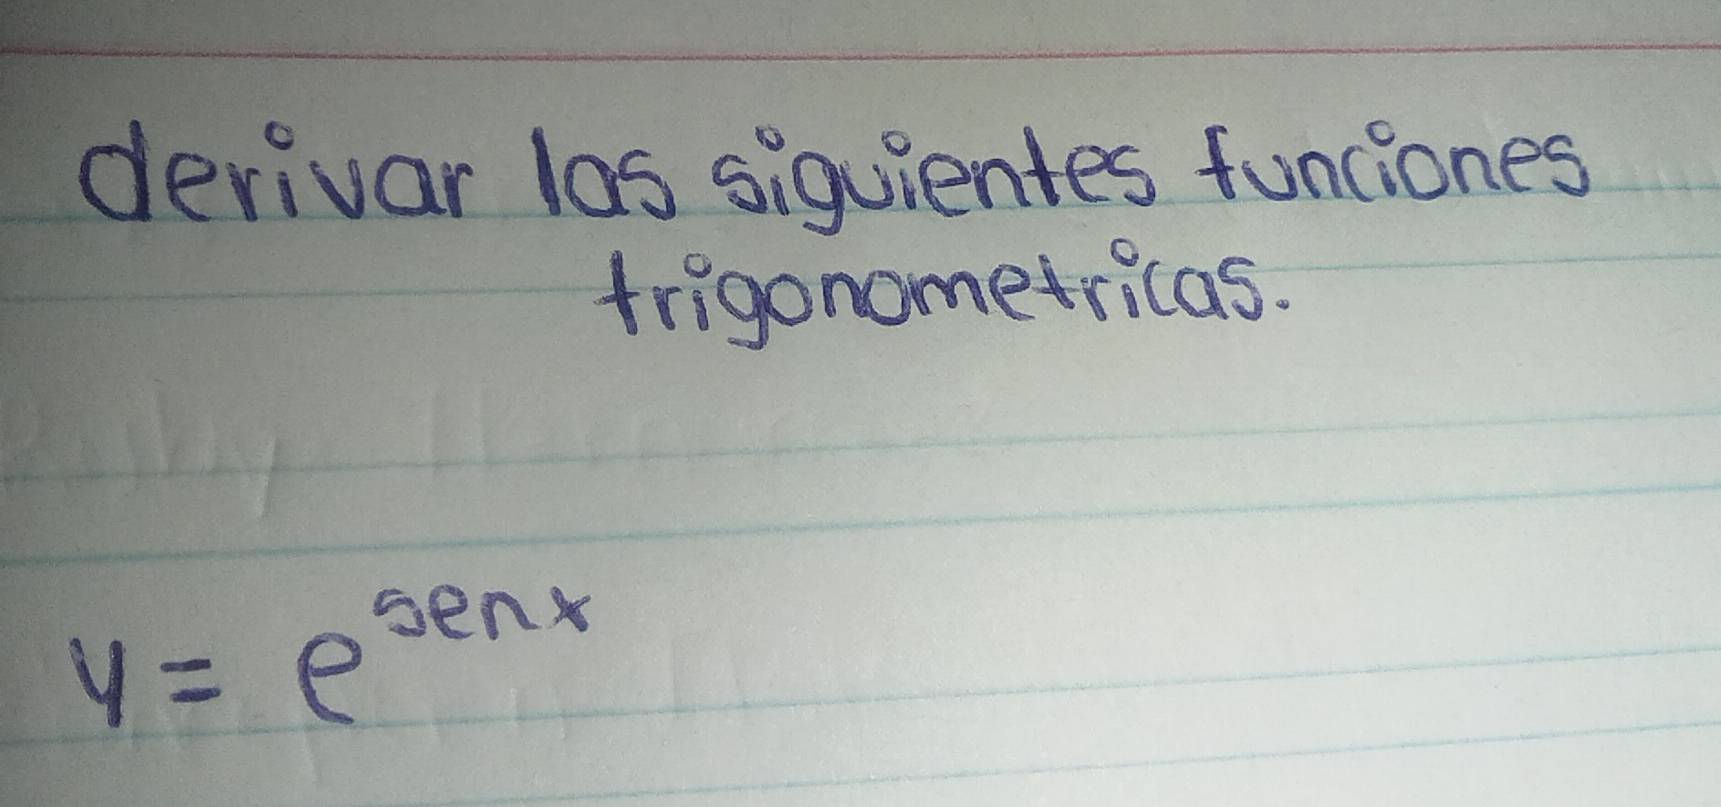 derivar las siguientes funciones
trigonometricas.
y = e^senx